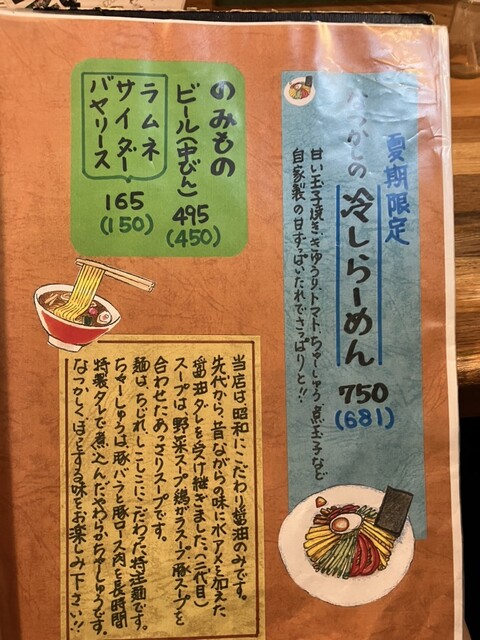 夏期限定
冷しらーめん
750
(681)
甘い玉子焼き、きゅうり、トマト、ちゃーしゅう、煮玉子など
自家製の甘ずっぱいたれでさっぱりと!!
のみもの
ビール(中びん)
495
(450)
ラムネ
サイダー
バヤリース
165
(150)
当店は、昭和にこだわり醤油のみです。
先代から、昔ながらの味に水アメを加えた
醤油タレを受け継ぎました。(二代目)
スープは、野菜スープ、鶏ガラスープ、豚スープを
合わせたあっさりスープです。
麺は、ちぢれ、しこしこに、こだわった特注麺です。
ちゃーしゅうは豚バラと豚ロース肉を長時間
特製タレで煮込んだやわらかちゃーしゅうです。
なつかしくほっとする味をお楽しみ下さい!!